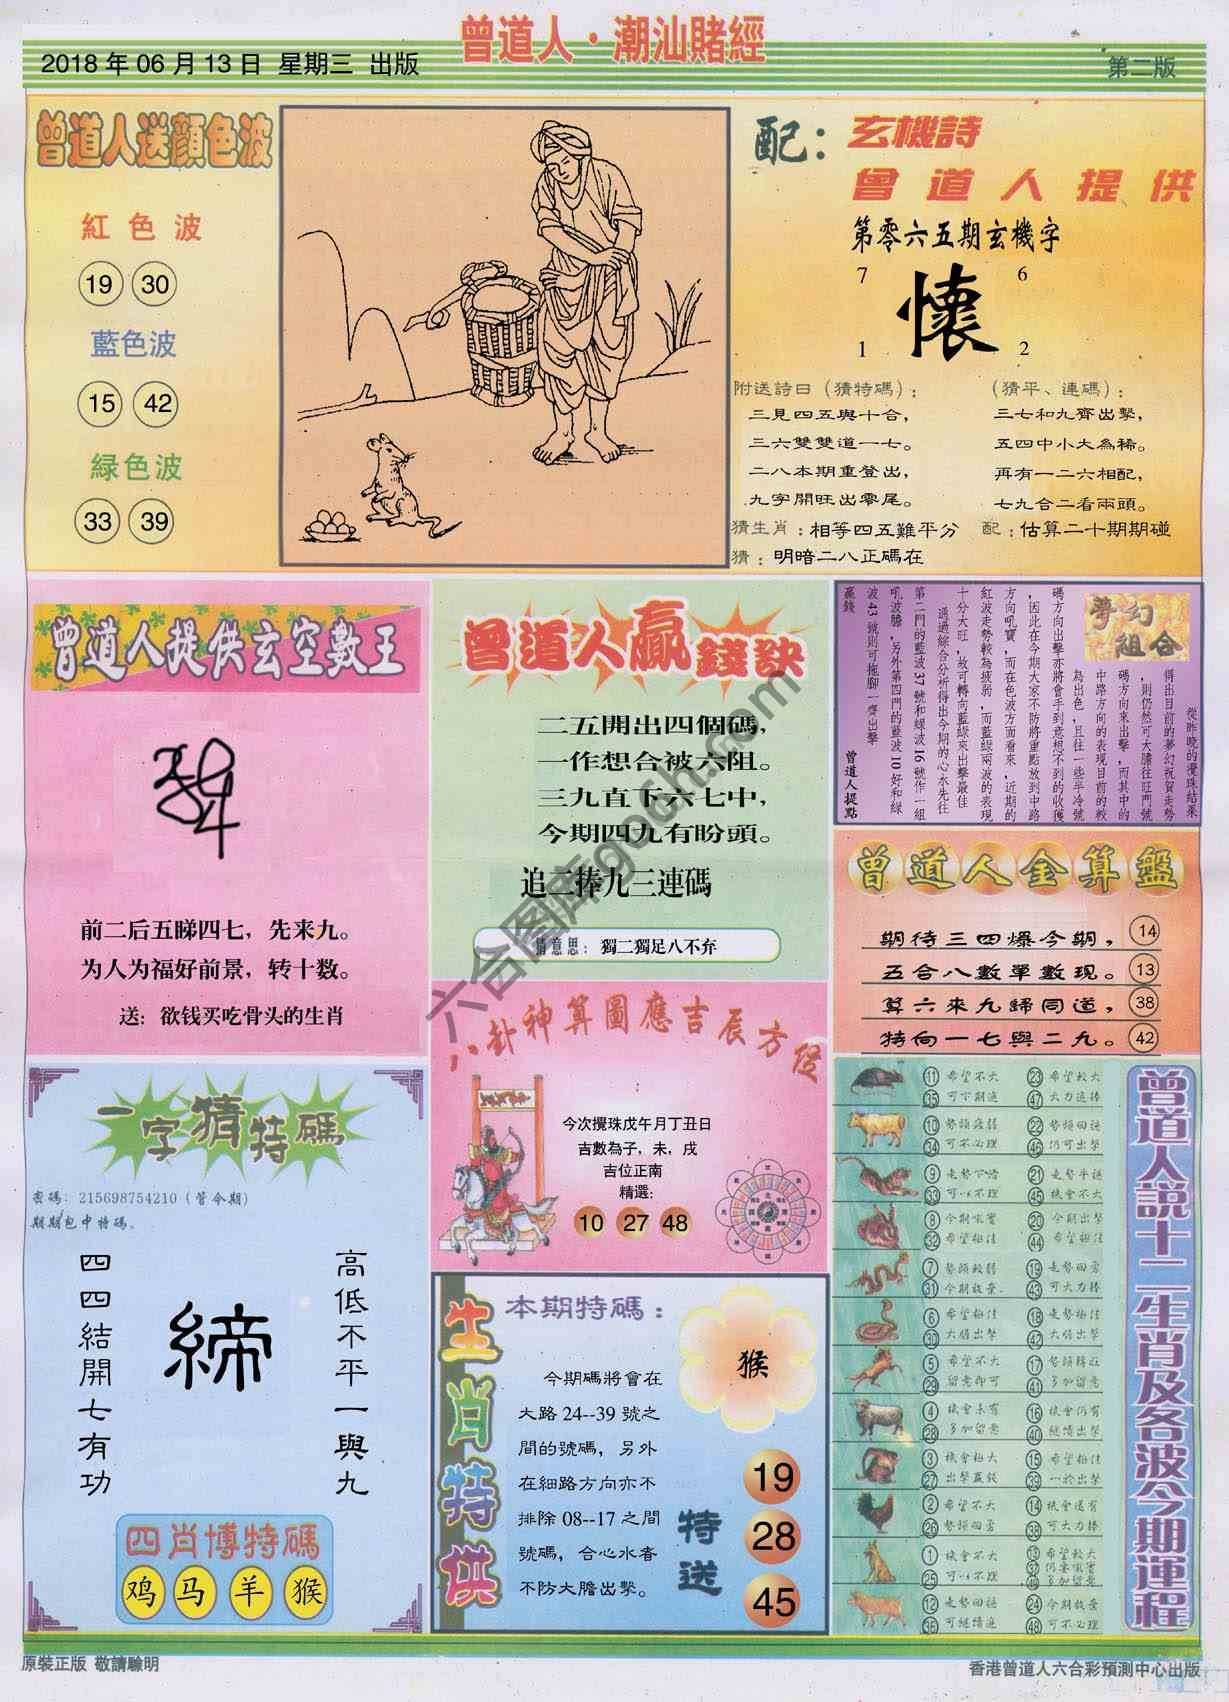 曾道人·潮汕賭經
2018年06月13日 星期三 出版
第二版
曾道人送顏色波
紅色波
19 30
藍色波
15 42
緑色波
33 39
配：玄機詩
曾道人提供
第零六五期玄機字
7 6
懷
1 2
附送詩曰（猜特碼）：
三見四五與十合，
三六雙雙道一七。
二八本期重登出，
九字開旺出零尾。
（猜平、連碼）：
三七和九齊出擊，
五四中小大為稀。
再有一二六相配，
七九合二看兩頭。
猜生肖：相等四五難平分
配：估算二十期期碰
猜：明暗二八正碼在
曾道人提供玄空數王
前二后五睇四七，先来九。
为人为福好前景，转十数。
送：欲钱买吃骨头的生肖
曾道人贏錢訣
二五開出四個碼，
一作想合被六阻。
三九直下六七中，
今期四九有盼頭。
追二捧九三連碼
猜意思：獨二獨足八不弃
夢幻組合
從昨晚的攪珠結果
得出目前的夢幻祝賀走勢
，則仍然可大膽往旺門號
碼方向來出擊，而其中的
中路方向的表現目前的較
為出色，且往一些半冷號
碼方向出擊亦將會手到意想不到的收獲
，因此在今期大家不防將重點放到中路
方向吼寶，而在色波方面看來，近期的
紅波走勢較為疲弱，而藍綠兩波的表現
十分大旺，故可轉向藍綠來出擊最佳
通過綜合分析得出今期的心水先往
第二門的藍波37號和緑波16號作一組
吼波膽，另外第四門的藍波10好和綠
波43號則可拖腳一齊出擊
贏錢
曾道人提點
曾道人金算盤
期待三四爆今期，14
五合八數單數現。13
算六來九歸同道，38
特向一七與二九。42
八卦神算圖應吉辰方位
今次攪珠戊午月丁丑日
吉數為子，未，戌
吉位正南
精選：
10 27 48
一字猜特碼
密碼：215698754210（管今期）
期期包中特碼。
高低不平一與九
締
四四結開七有功
四肖博特碼
鸡 马 羊 猴
生肖特供
本期特碼：
猴
今期碼將會在
大路24--39號之
間的號碼，另外
在細路方向亦不
排除08--17之間
號碼，合心水者
不防大膽出擊。
特送
19
28
45
曾道人説十二生肖及各波今期運程
11 希望不大 23 希望較大
35 可下期追 47 大力追捧
10 勢頭疲弱 22 勢頭回穩
34 可不必理 46 仍可出擊
9 走勢下滑 21 走勢平穩
33 可以不理 45 機會不大
8 今期吼寶 20 今期出擊
32 希望極佳 44 希望極佳
7 勢頭較弱 19 走勢回勇
31 今期放棄 43 可大力捧
6 希望極佳 18 走勢極佳
30 大膽出擊 42 大膽出擊
5 希望不大 17 勢頭轉旺
29 留意即可 41 多加留意
4 機會未有 16 機會仍有
28 多加留意 40 繼續出擊
3 機會極大 15 希望極佳
27 出擊贏錢 39 一於出擊
2 希望不大 14 機會還有
26 勢頭回勇 38 可大力捧
1 機會不大 13 希望較大
25 可以不理 37 仍要吼實
49 多加留意
12 走勢回穩 24 今期放棄
36 可繼續追 48 可不必理
原裝正版 敬請驗明
香港曾道人六合彩預測中心出版
六合图库gocht.com